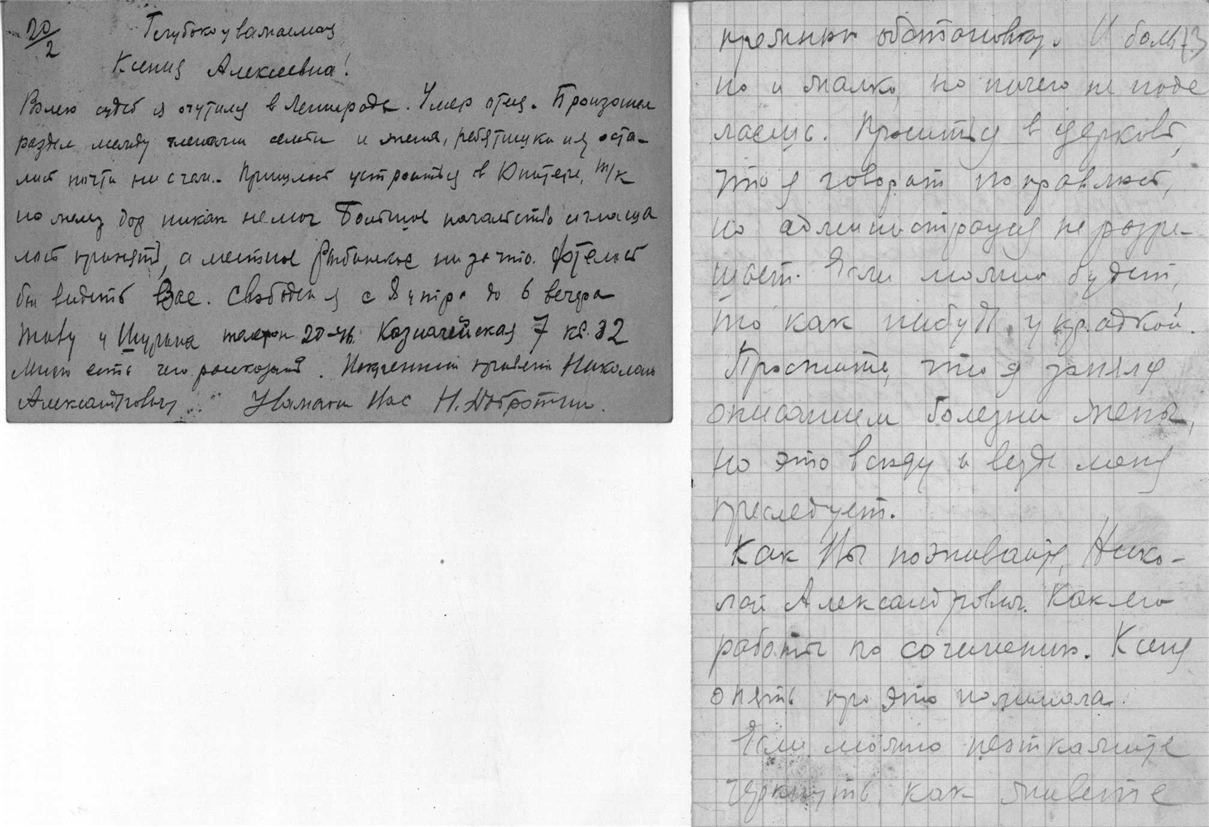 20/2
Глубокоуважаемая
Ксения Алексеевна!
Волею судеб я очутился в Ленинграде. Умер отец. Произошел
раздел между членами семьи и меня, ребятишки и я оста-
лись почти ни с чем. Пришлось устроиться в т/к
по никак не мог Большое начальство соглаша
лось принять, а местное Рыбинское ни за что. Хотелось
бы видеть Вас. Свободен я с 8 утра до 6 вечера
Живу у телефон Казначейская 7 кв. 32
Мне есть что рассказать. Искренний привет Николаю
Александровичу. Уважающий Вас Н. Добротин.
обстановку. И боль
но и жалко, но ничего не поде
лаешь. Просится в церковь,
что я говорят поправлюсь,
но администрация не разре-
шает. Если можно будет,
то как нибудь украдкой.
Простите, что я занялся
описанием болезни жены,
но это всюду и везде меня
преследует.
Как Вы поживаете, Нико-
лай Александрович. Как его
работы по сочинению. Ксения
опять про это поминала.
Если можно не откажите
черкнуть как живете